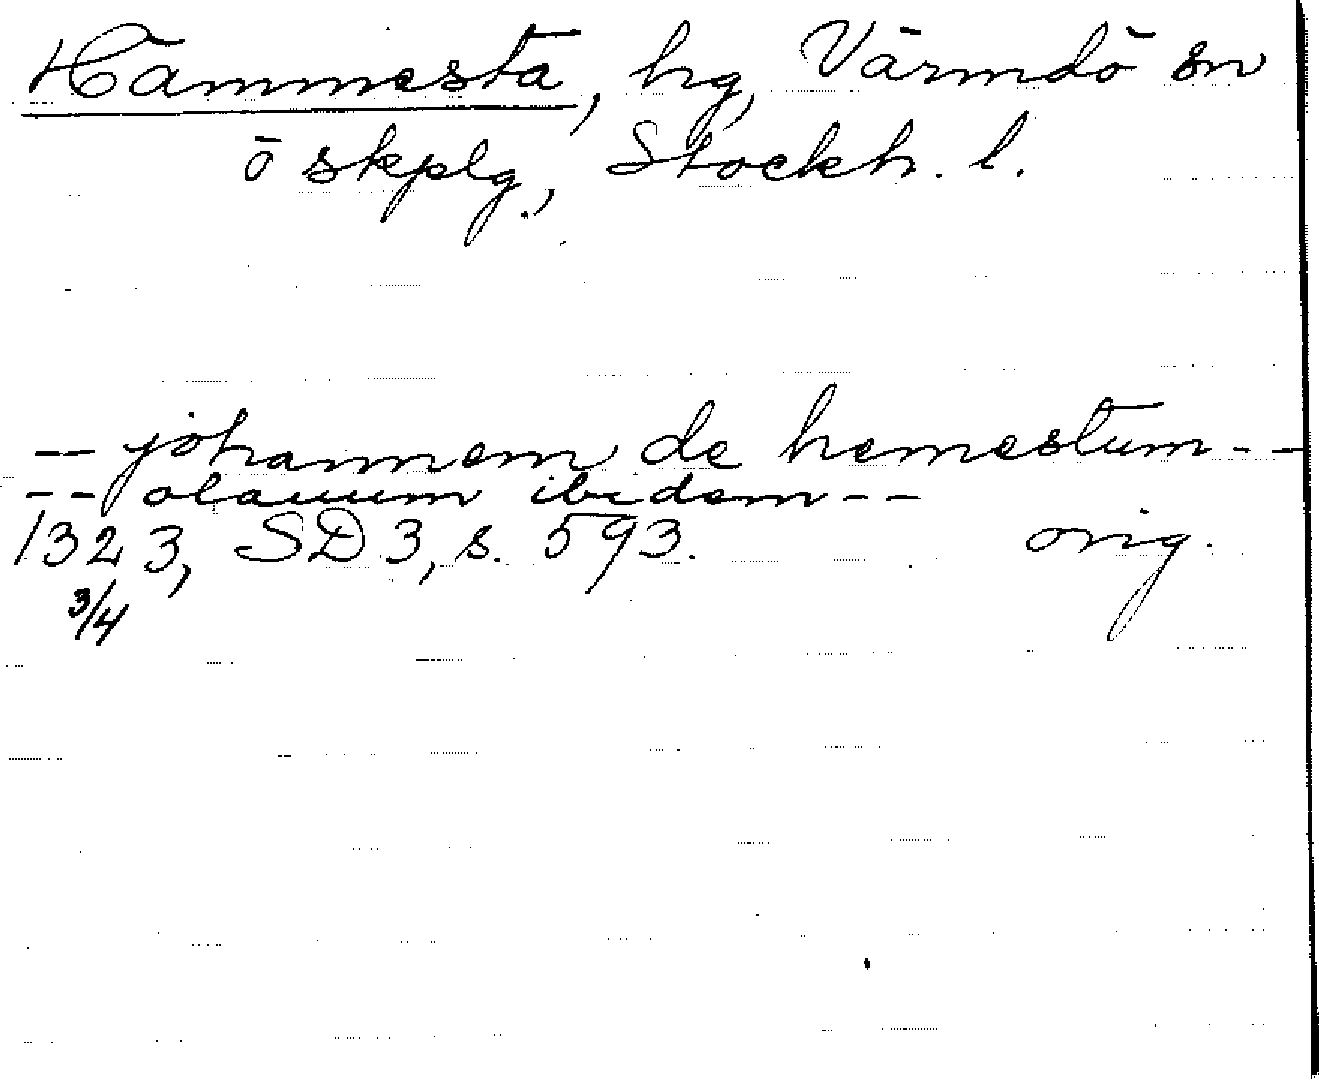 Hämmesta, hg, Värmdö sn
ö skplg., Stockh. l.
-- johannem de hemestum --
-- olauum ibidem --
1323, SD 3, s. 593. orig.
3/4